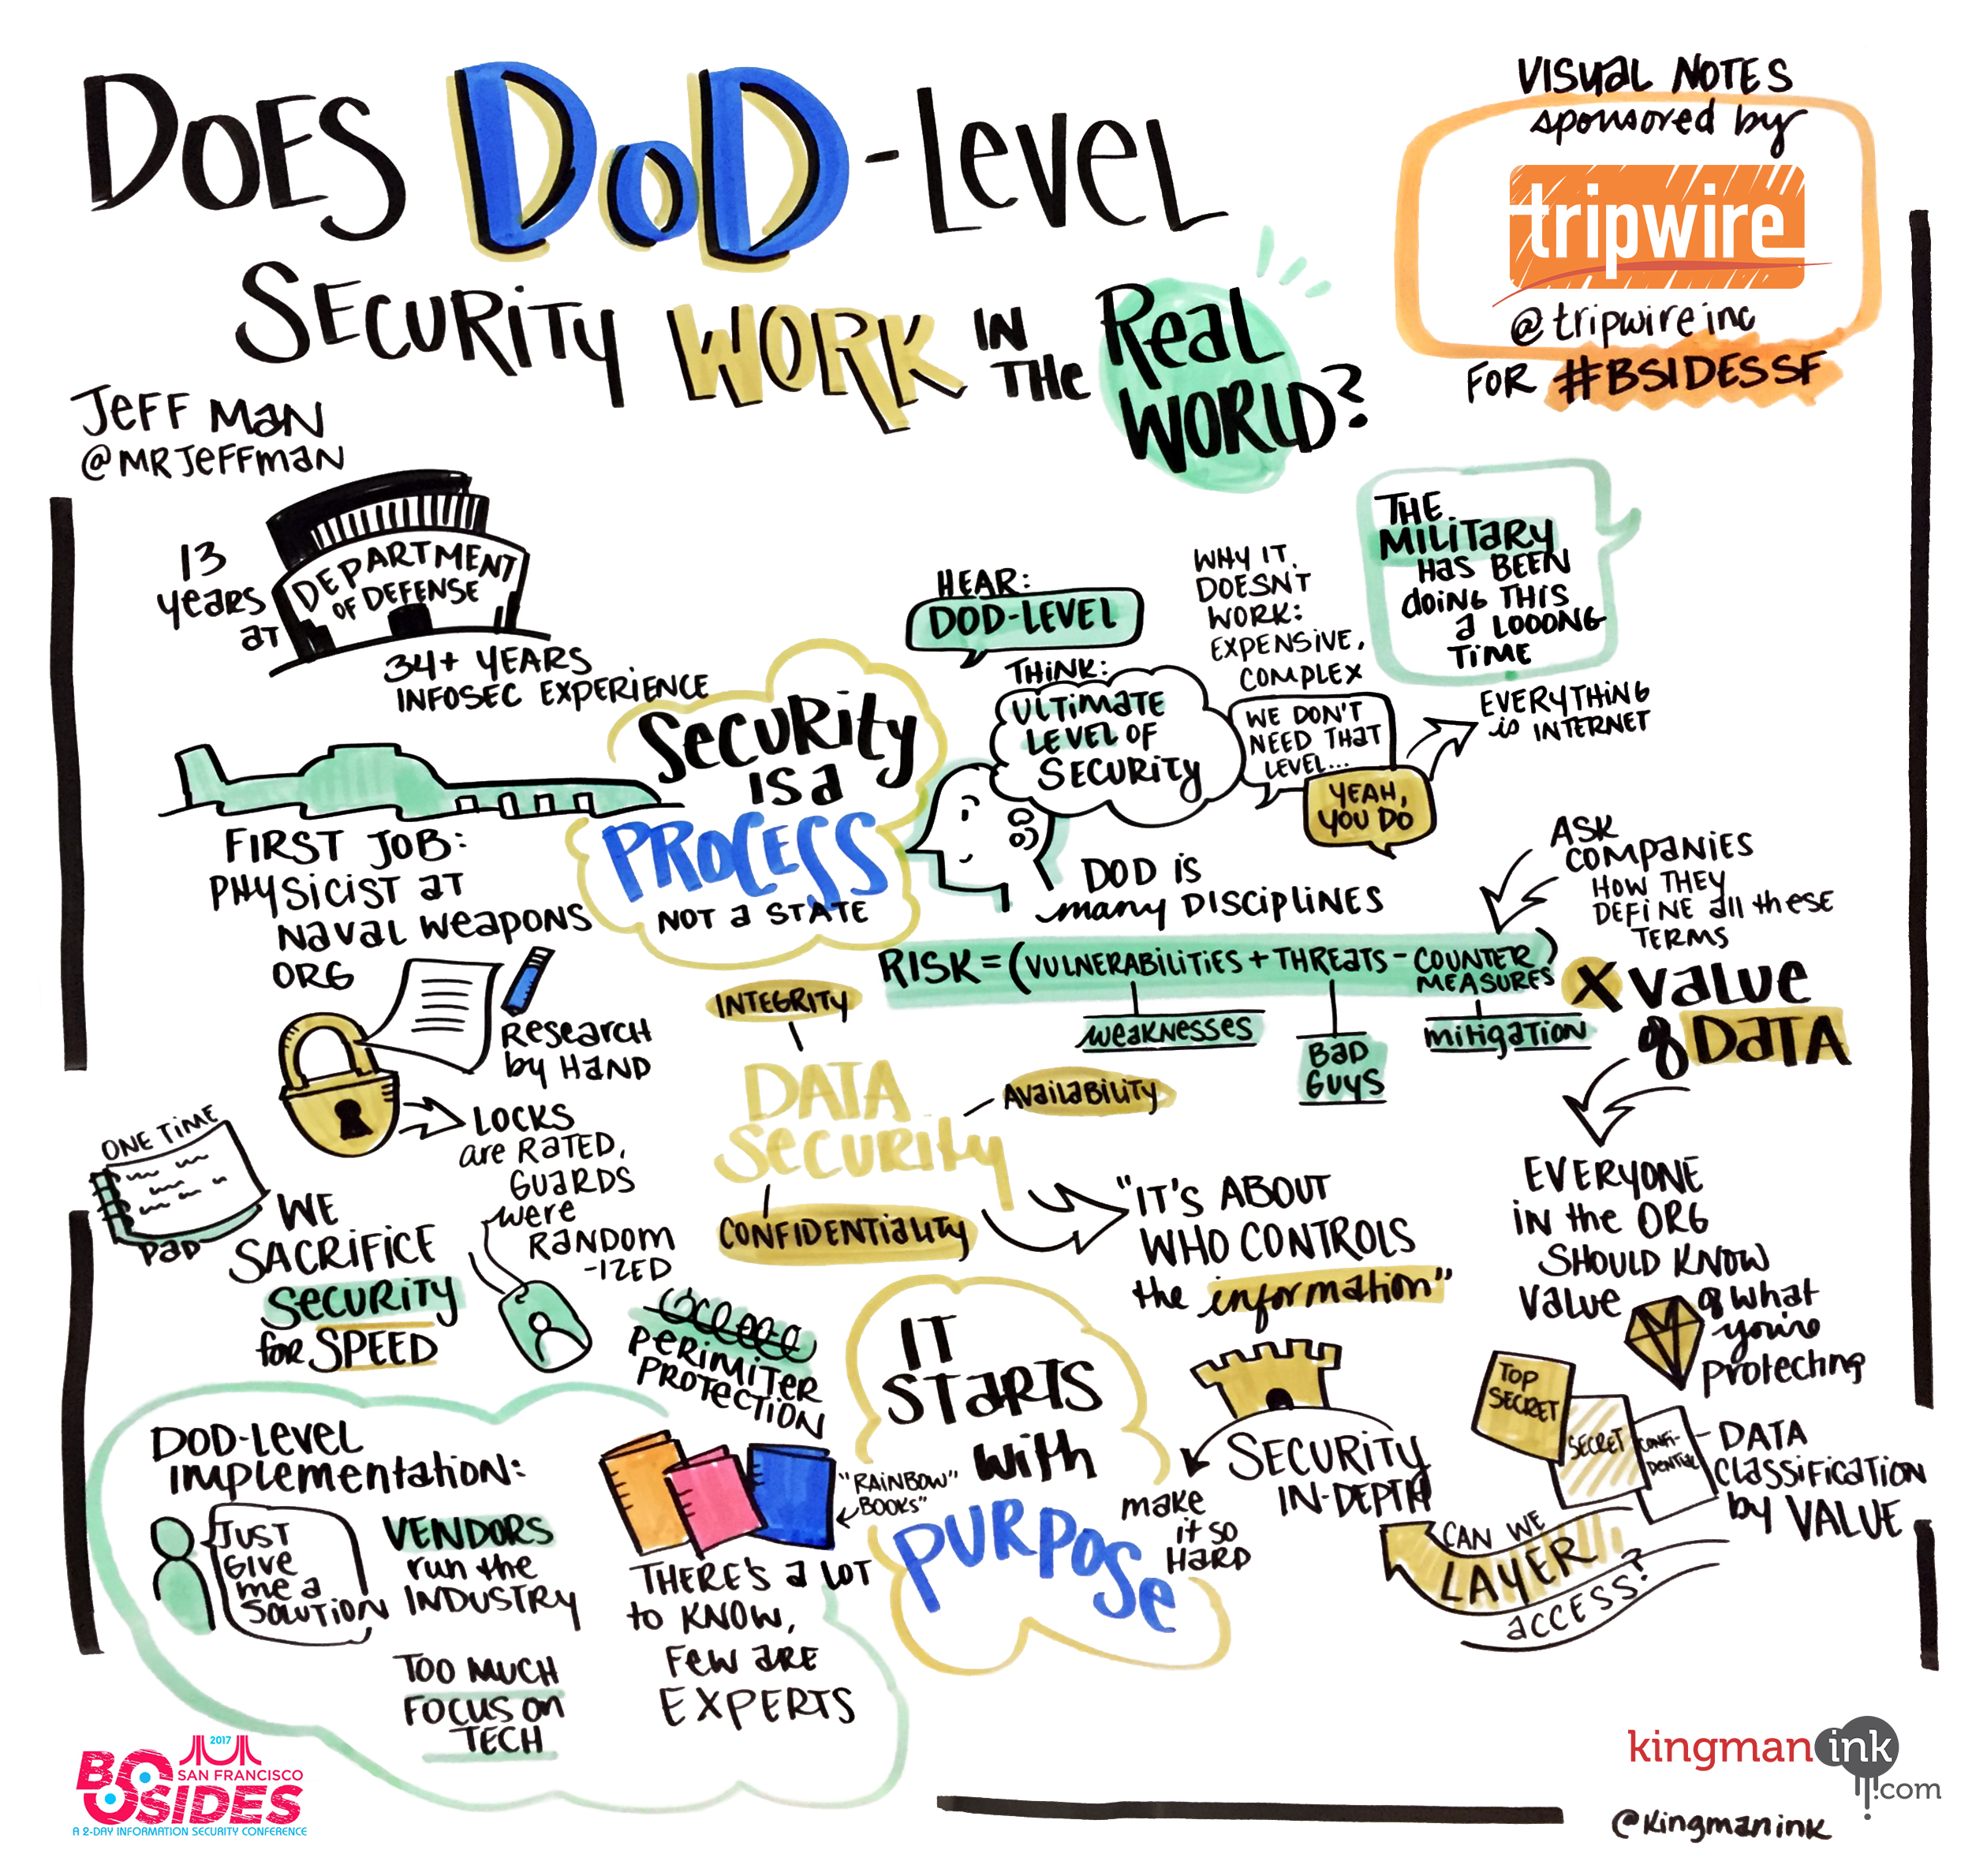 DOES DoD-Level
SECURITY WORK IN THE Real WORLD?
VISUAL NOTES
sponsored by
tripwire
@tripwireinc
FOR #BSIDESSF
JEFF MAN
@MRJEFFMAN
13
years
at
DEPARTMENT
OF DEFENSE
34+ YEARS
INFOSEC EXPERIENCE
FIRST JOB:
PHYSICIST AT
NAVAL WEAPONS
ORG
RESEARCH
by HAND
LOCKS
are RATED,
GUARDS
were
RANDOM
-IZED
ONE TIME
PAD
WE
SACRIFICE
SECURITY
for SPEED
PERIMITER
PROTECTION
SECURITY
IS a
PROCESS
NOT a STATE
HEAR:
DOD-LEVEL
THINK:
ULTIMATE
LEVEL OF
SECURITY
WHY IT
DOESN'T
WORK:
EXPENSIVE,
COMPLEX
WE DON'T
NEED THAT
LEVEL...
YEAH,
YOU DO
THE
MILITARY
HAS BEEN
doING THIS
a LOOONG
TIME
EVERYTHING
is INTERNET
DOD IS
many DISCIPLINES
ASK
COMPANIES
HOW THEY
DEFINE all these
TERMS
RISK = (VULNERABILITIES + THREATS - COUNTER
MEASURES)
X VALUE
of DATA
WEAKNESSES
BAD
GUYS
MITIGATION
INTEGRITY
DATA
SECURITY
AVAILABILITY
CONFIDENTIALITY
"IT'S ABOUT
WHO CONTROLS
the information"
EVERYONE
IN the ORG
SHOULD KNOW
VALUE of what
you're
protecting
TOP
SECRET
SECRET
CONFI-
DENTIAL
DATA
CLASSIFICATION
by VALUE
CAN WE
LAYER
ACCESS?
SECURITY
IN-DEPTH
make
it so
HARD
IT
STARTS
with
PURPOSE
DOD-Level
IMPLEMENTATION:
JUST
GIVE
me a
SOLUTION
VENDORS
run the
INDUSTRY
TOO MUCH
FOCUS on
TECH
"RAINBOW"
BOOKS"
THERE'S a LOT
to KNOW,
FEW are
EXPERTS
2017
SAN FRANCISCO
BSIDES
A 2-DAY INFORMATION SECURITY CONFERENCE
kingmanink
.com
@kingmanink